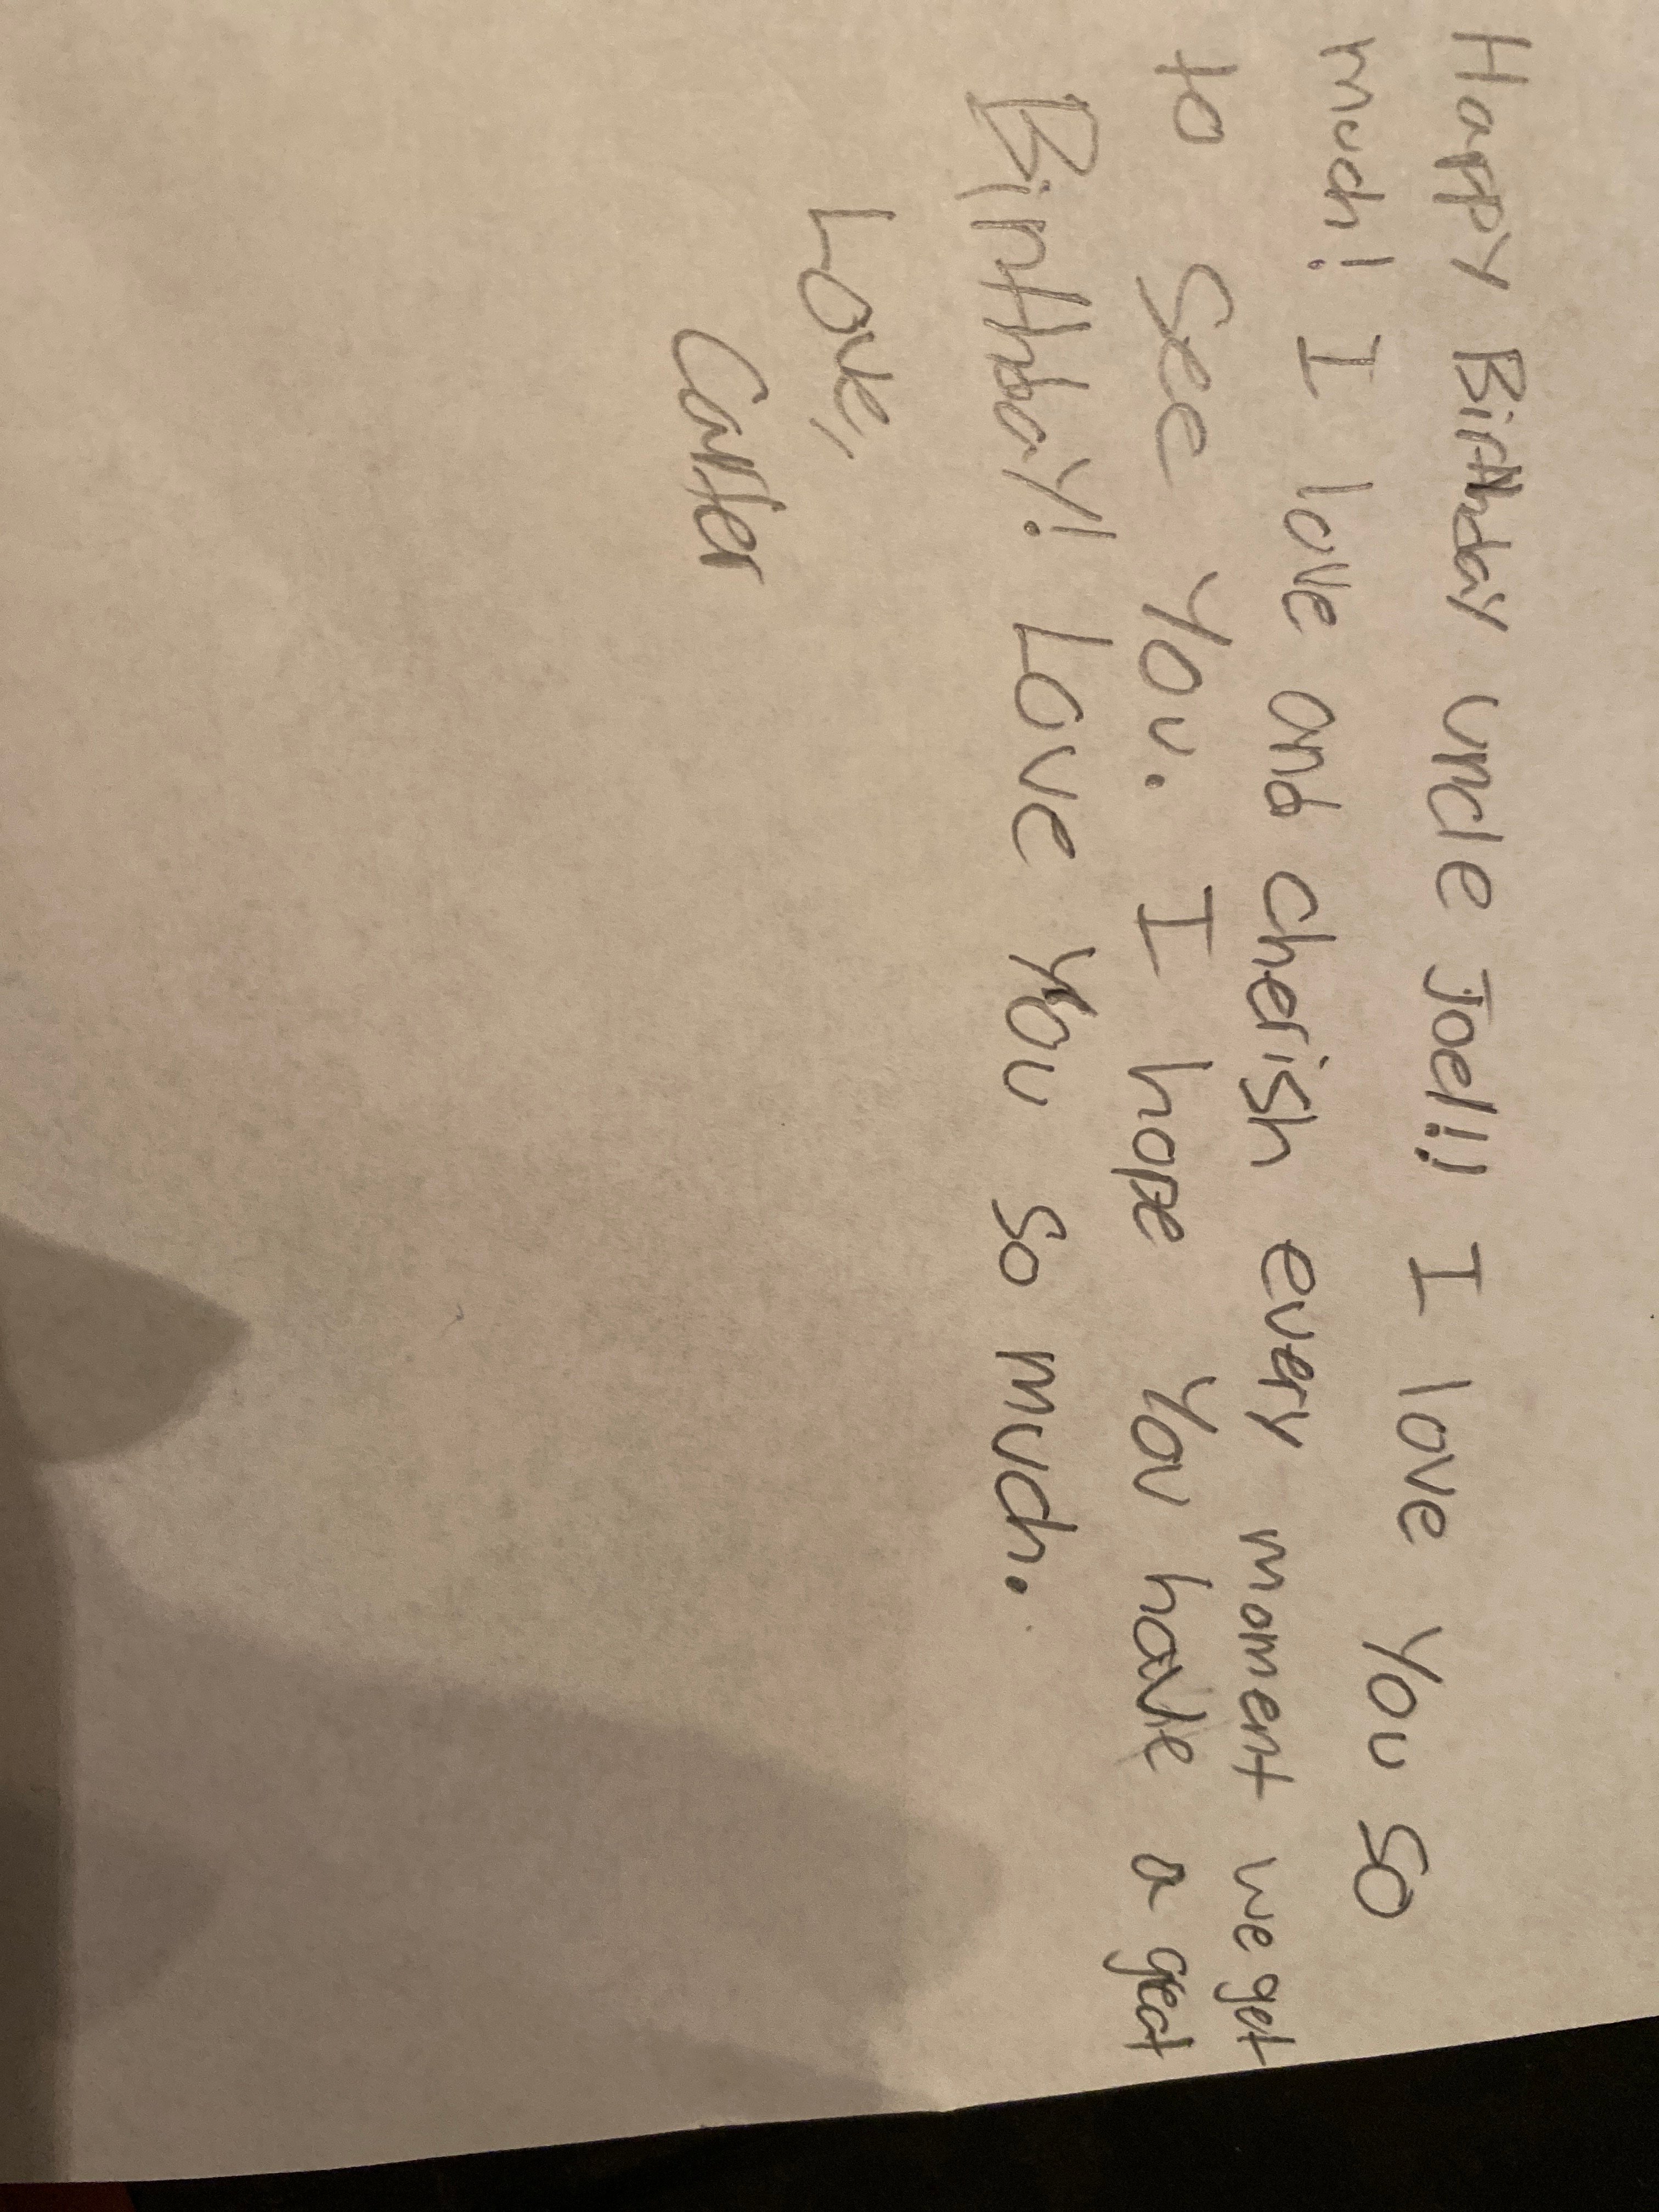 Happy Birthday uncle Joel!! I love you so
much! I love and cherish every moment we get
to see you. I hope you have a great
Birthday! Love you so much.
Love,
Carter